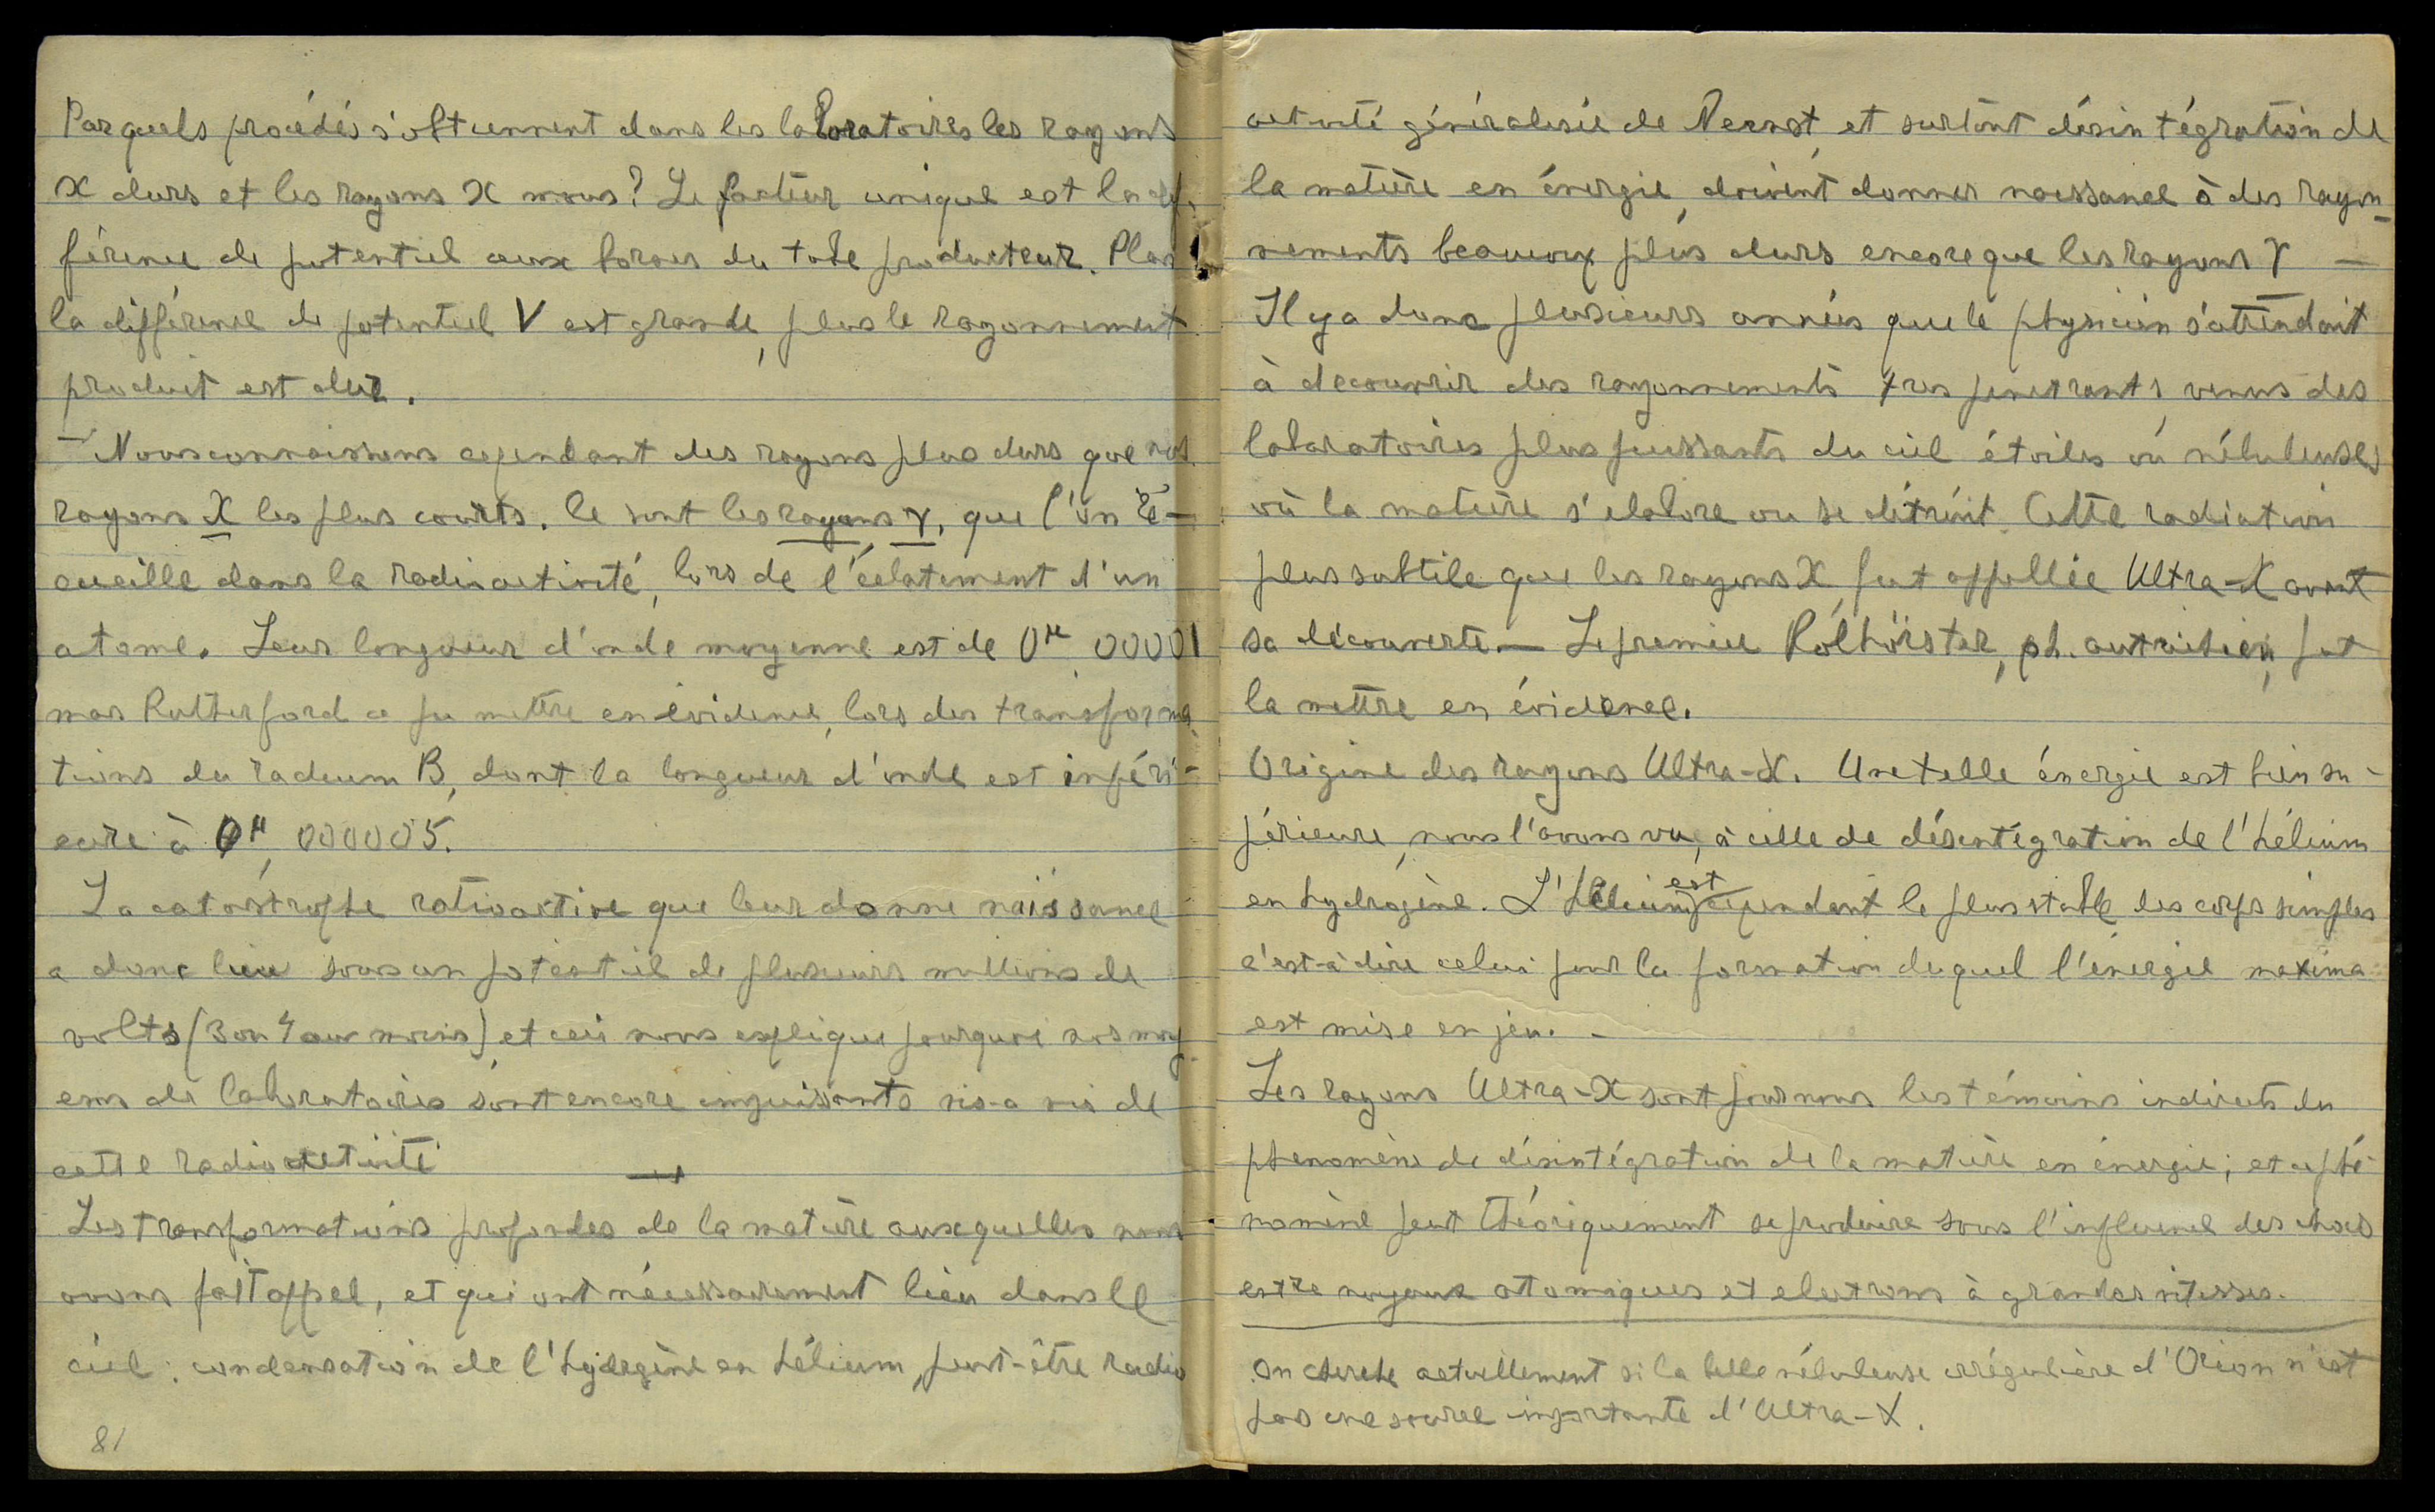 Par quels procédés s'obtiennent dans les laboratoires les rayons
X durs et les rayons X mous? Le facteur unique est la dif-
férence de potentiel aux bornes du tube producteur. Plus
la différence de potentiel V est grande, plus le rayonnement
produit est dur.
- Nous connaissons cependant des rayons plus durs que nos
rayons X les plus courts. Ce sont les rayons γ, que l'on re-
cueille dans la radioactivité, lors de l'éclatement d'un
atome. Leur longueur d'onde moyenne est de 0μ, 00001
mas Rutherford a pu mettre en évidence, lors des transforma
tions du radium B, dont la longueur d'onde est inféri-
eure à 0μ, 000005.
La catastrophe rativoactive que leur donne naissance
a donc lieu sous un potentiel de plusieurs millions de
volts (3 ou 4 au moins) et ceci nous explique pourquoi nos moy
ens de laboratoires sont encore impuissants vis-a vis de
cette radioactivité
Les transformations profondes de la matière auxquelles nous
avons fait appel, et qui ont nécessairement lieu dans le
ciel: condensation de l'hydrogène en hélium, peut-être radio
81
activité généralisée de Nernst, et surtout désintégration de
la matière en énergie, doivent donner naissance à des rayon-
nements beaucoup plus durs encore que les rayons γ -
Il y a donc plusieurs années que le physicien s'attendait
à decouvrir des rayonnements tres penetrants, venus des
laboratoires plus puissants du ciel étoiles ou nébuleuses
où la matière s'elabore ou se détruit. Cette radiation
plus subtile que les rayons X fut appellée Ultra-X avant
sa découverte - Le premier Kolhörster, ph. autrichien, put
la mettre en évidence.
Origine des rayons Ultra-X. Une telle énergie est bien su-
périeure, nous l'avons vu, à celle de désintégration de l'hélium
en hydrogène. L'hélium est cependant le plus stable des corps simples
c'est-à dire celui pour la formation duquel l'énergie maxima
est mise en jeu. -
Les rayons Ultra-X sont pour nous les témoins indirects du
phenomène de désintégration de la matière en énergie; et ce phé-
nomène peut théoriquement se produire sous l'influence des chocs
entre noyaux attomiques et electrons à grandes vitesses.
On cherche actuellement si la belle nébuleuse irrégulière d'Orion n'est
pas une source importante d'Ultra-X.